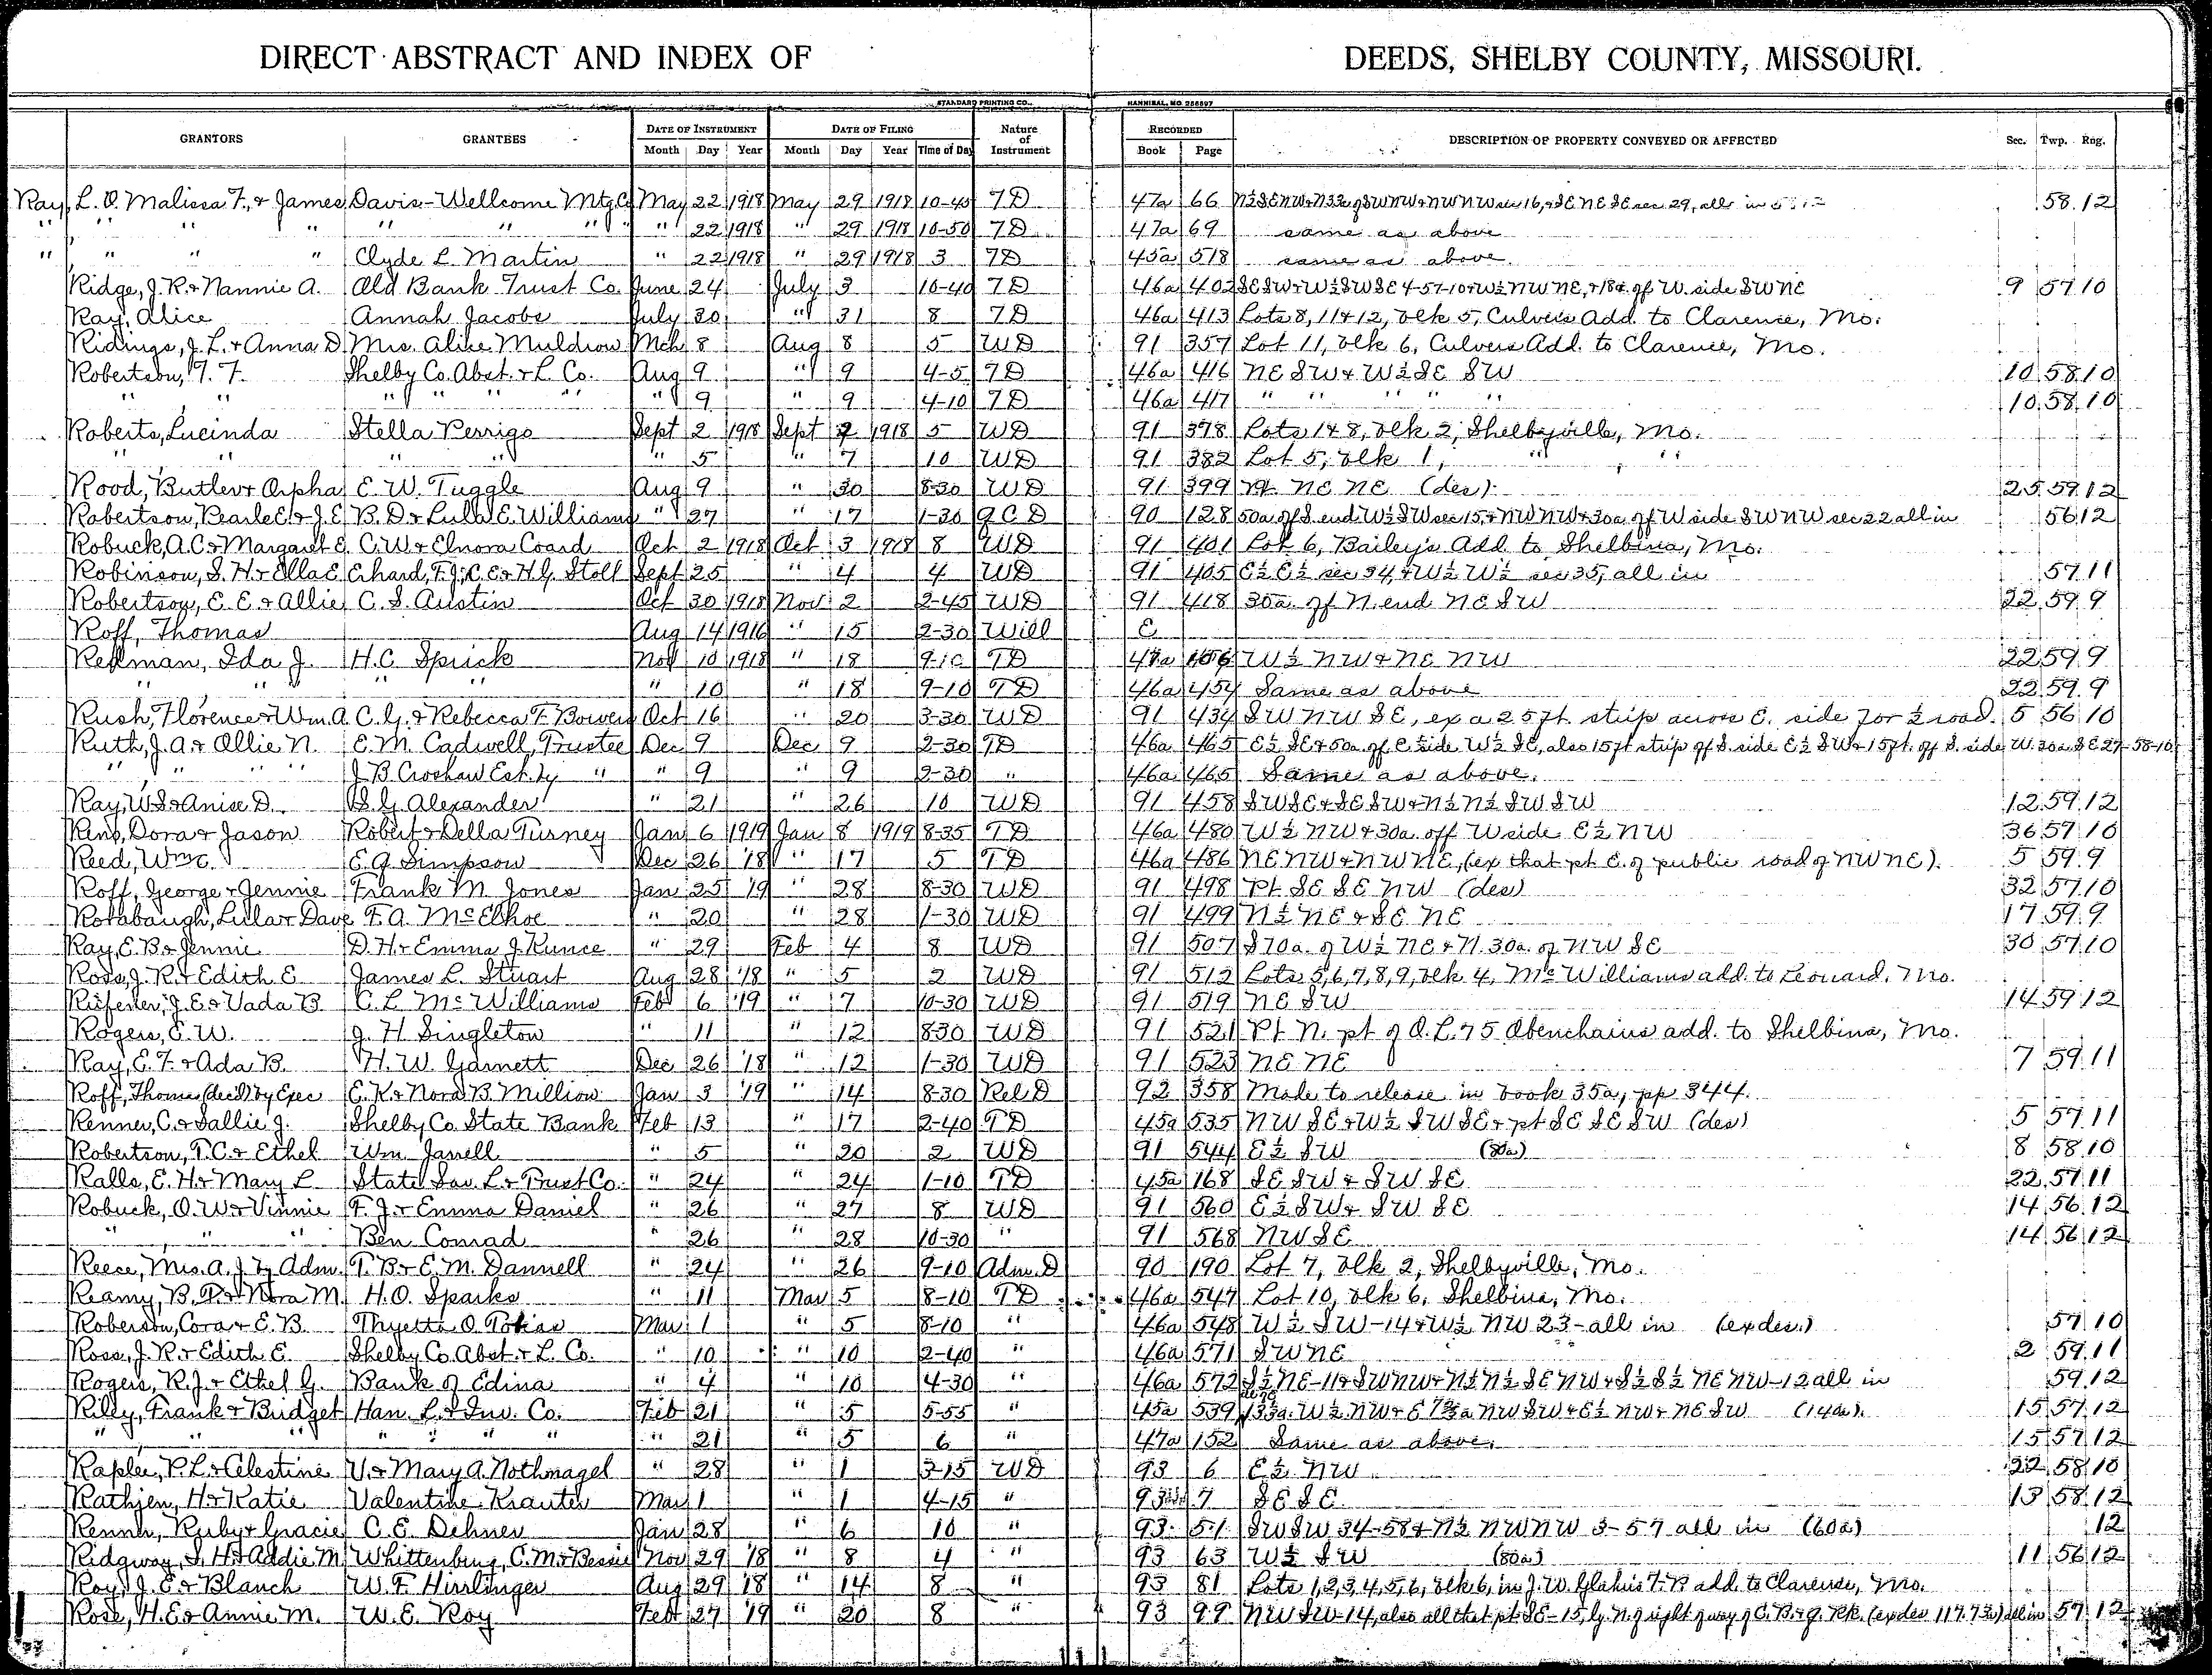 DIRECT ABSTRACT AND INDEX OF DEEDS, SHELBY COUNTY, MISSOURI.
STANDARD PRINTING CO., HANNIBAL, MO. 256897
GRANTORS GRANTEES DATE OF INSTRUMENT DATE OF FILING Nature of Instrument RECORDED DESCRIPTION OF PROPERTY CONVEYED OR AFFECTED Sec. Twp. Rng.
Month Day Year Month Day Year Time of Day Book Page
Ray, L. O. Malissa F., & James Davis-Wellcome Mtg. C May 22 1918 May 29 1918 10-40 TD 47a 66 N½SENW& of SWNW& NWNW sec 16, & SE NE SE sec 29, all in 58 12
" " " " " " " " 22 1918 " 29 1918 10-50 TD 47a 69 same as above
" " " " Clyde L. Martin " 22 1918 " 29 1918 3 TD 45a 518 same as above.
Ridge, J. R. & Nannie A. Old Bank Trust Co. June 24 July 3 10-40 TD 46a 402 SESW& W½SWSE 4-57-10& W½ NW NE, & 18a. of W. side SWNE 9 57 10
Ray, Alice Annah Jacobs July 30 " 31 8 TD 46a 413 Lots 8, 11 & 12, blk 5, Culvers Add. to Clarence, Mo.
Ridings, J. L. & Anna D. Mrs. Alice Muldrow Mch 8 Aug 8 5 WD 91 357 Lot 11, blk 6, Culvers Add. to Clarence, Mo.
Robertson, T. F. Shelby Co. Abst. & L. Co. Aug 9 " 9 4-5 TD 46a 416 NE SW & W½ SE SW 10 58 10
" " " " " " " 9 " 9 4-10 TD 46a 417 " " " " " 10 58 10
Roberts, Lucinda Stella Perrigo Sept 2 1918 Sept 7 1918 5 WD 91 378 Lots 1 & 8, blk 2, Shelbyville, Mo.
" " " " " 5 " 7 10 WD 91 382 Lot 5, blk 1, " "
Rood, Butler & Orpha E. W. Tuggle Aug 9 " 30 8-30 WD 91 399 Pt. NE NE (des) 25 59 12
Robertson, Pearle E. & J. E. B. D. & Lula E. Williams " 27 " 17 1-30 QCD 90 128 50a of S. end W½ SW sec 15, & NW NW & 30a. of W side SW NW sec 22 all in 56 12
Robuck, A. C. & Margaret E. C. W. & Elnora Coard Oct 2 1918 Oct 3 1918 8 WD 91 401 Lot 6, Bailey's Add. to Shelbina, Mo.
Robinson, S. H. & Ella E. Erhard, F. J., C. E. & H. G. Stoll Sept 25 " 4 4 WD 91 405 E½ E½ sec 34, & W½ W½ sec 35, all in 57 11
Robertson, E. E. & Allie C. S. Austin Oct 30 1918 Nov 2 2-45 WD 91 418 30a. of N. end NE SW 22 59 9
Roff, Thomas Aug 14 1916 " 15 2-30 Will E
Rellman, Ida J. H. C. Sprick Nov 10 1918 " 18 9-10 TD 47a 106 W½ NW & NE NW 22 59 9
" " " " " 10 " 18 9-10 TD 46a 454 Same as above 22 59 9
Rush, Florence & Wm. A. C. G. & Rebecca F. Bowers Oct 16 " 20 3-30 WD 91 434 SW NW SE, ex a 25 ft. strip across E. side for ½ road. 5 56 10
Ruth, J. A. & Ollie N. E. M. Cadwell, Trustee Dec 9 Dec 9 2-30 TD 46a 465 E½ SE & 50a. of E. side W½ SE, also 15 ft strip of S. side E½ SW & 15 ft. of S. side W. 30a. SE 27-58-10
" " " " J. B. Croshaw Est. by " " 9 " 9 2-30 " 46a 465 Same as above.
Ray, W. S. & Anise D. S. G. Alexander " 21 " 26 10 WD 91 458 SWSE & SESW & N½ N½ SW SW 12 59 12
Reno, Dora & Jason Robert & Della Turney Jan 6 1919 Jan 8 1919 8-35 TD 46a 480 W½ NW & 30a. off W side E½ NW 36 57 10
Reed, Wm. C. E. G. Simpson Dec 26 '18 " 17 5 TD 46a 486 NENW & NWNE, (ex that pt E. of public road of NW NE). 5 59 9
Roff, George & Jennie Frank M. Jones Jan 25 '19 " 28 8-30 WD 91 498 Pt. SE SE NW (des) 32 57 10
Rorabaugh, Lular Dave F. A. McElhoe " 20 " 28 1-30 WD 91 499 N½ NE & SE NE 17 59 9
Ray, E. B. & Jennie D. H. & Emma J. Kunce " 29 Feb 4 8 WD 91 507 S 70a. of W½ NE & N. 30a. of NW SE 30 57 10
Ross, J. R. & Edith E. James L. Stuart Aug 28 '18 " 5 2 WD 91 512 Lots 5, 6, 7, 8, 9, blk 4, McWilliams add. to Leonard, Mo.
Rufener, J. E. & Vada B. C. L. McWilliams Feb 6 '19 " 7 10-30 WD 91 519 NE SW 14 59 12
Rogers, E. W. J. H. Singleton " 11 " 12 8-30 WD 91 521 Pt. N. pt of O. L. 75 Obenchains add. to Shelbina, Mo.
Ray, E. F. & Ada B. H. W. Garnett Dec 26 '18 " 12 1-30 WD 91 523 NE NE 7 59 11
Roff, Thomas (dec'd) by Exec E. K. & Nora B. Million Jan 3 '19 " 14 8-30 Rel D 92 358 Made to release in book 35a, pp 344.
Renner, C. & Sallie J. Shelby Co. State Bank Feb 13 " 17 2-40 TD 45a 535 NW SE & W½ SW SE & pt SE SE SW (des) 5 57 11
Robertson, T. C. & Ethel Wm. Janell " 5 " 20 2 WD 91 544 E½ SW (80a) 8 58 10
Ralls, E. H. & Mary L. State Sav. L. & Trust Co. " 24 " 24 1-10 TD 45a 168 SE SW & SW SE 22 57 11
Robuck, O. W. & Vinnie F. J. & Emma Daniel " 26 " 27 8 WD 91 560 E½ SW & SW SE 14 56 12
" " " Ben Conrad " 26 " 28 10-30 " 91 568 NW SE 14 56 12
Reece, Mrs. A. J. by Adm. T. B. & E. M. Dannell " 24 " 26 9-10 Adm. D 90 190 Lot 7, blk 2, Shelbyville, Mo.
Reamy, B. P. & Nora M. H. O. Sparks " 11 Mar 5 8-10 TD 46a 547 Lot 10, blk 6, Shelbina, Mo.
Roberson, Cora & E. B. Thyetta O. Tobias Mar 1 " 5 8-10 " 46a 548 W½ SW-14 & W½ NW 23-all in (ex des.) 57 10
Ross, J. R. & Edith E. Shelby Co. Abst. & L. Co. " 10 " 10 2-40 " 46a 571 SWNE 2 59 11
Rogers, R. J. & Ethel G. Bank of Edina " 4 " 10 4-30 " 46a 572 S½ NE-11 & SWNW & N½ N½ SE NW & S½ S½ NE NW-12 all in 59 12
Riley, Frank & Bridget Han. L. & Inv. Co. Feb 21 " 5 5-55 " 45a 539 W½ NW & NW SW & E½ NW & NE SW (14a). 15 57 12
" " " " " " " 21 " 5 6 " 47a 152 Same as above. 15 57 12
Raplee, P. L. & Celestine V. & Mary A. Nothnagel " 28 " 1 3-15 WD 93 6 E½ NW 22 58 10
Rathjen, H. & Katie Valentine Krauter Mar 1 " 1 4-15 " 93 7 SE SE 13 58 12
Renner, Ruby & Gracie C. E. Dehner Jan 28 " 6 10 " 93 51 SW SW 34-58 & N½ NWNW 3-57 all in (60a) 12
Ridgway, S. H. & Addie M. Whittenburg, C. M. & Bessie Nov 29 '18 " 8 4 " 93 63 W½ SW (80a) 11 56 12
Roy, J. E. & Blanch W. F. Hirrlinger Aug 29 '18 " 14 8 " 93 81 Lots 1, 2, 3, 4, 5, 6, blk 6, in J. W. Glahns add. to Clarence, Mo.
Rose, H. E. & Annie M. W. E. Roy Feb 27 '19 " 20 8 " 93 99 NW SW-14, also all that pt SE-15, ly. N. of right of way of C. B. & Q. RR. (ex des 117.73a) all in 57 12